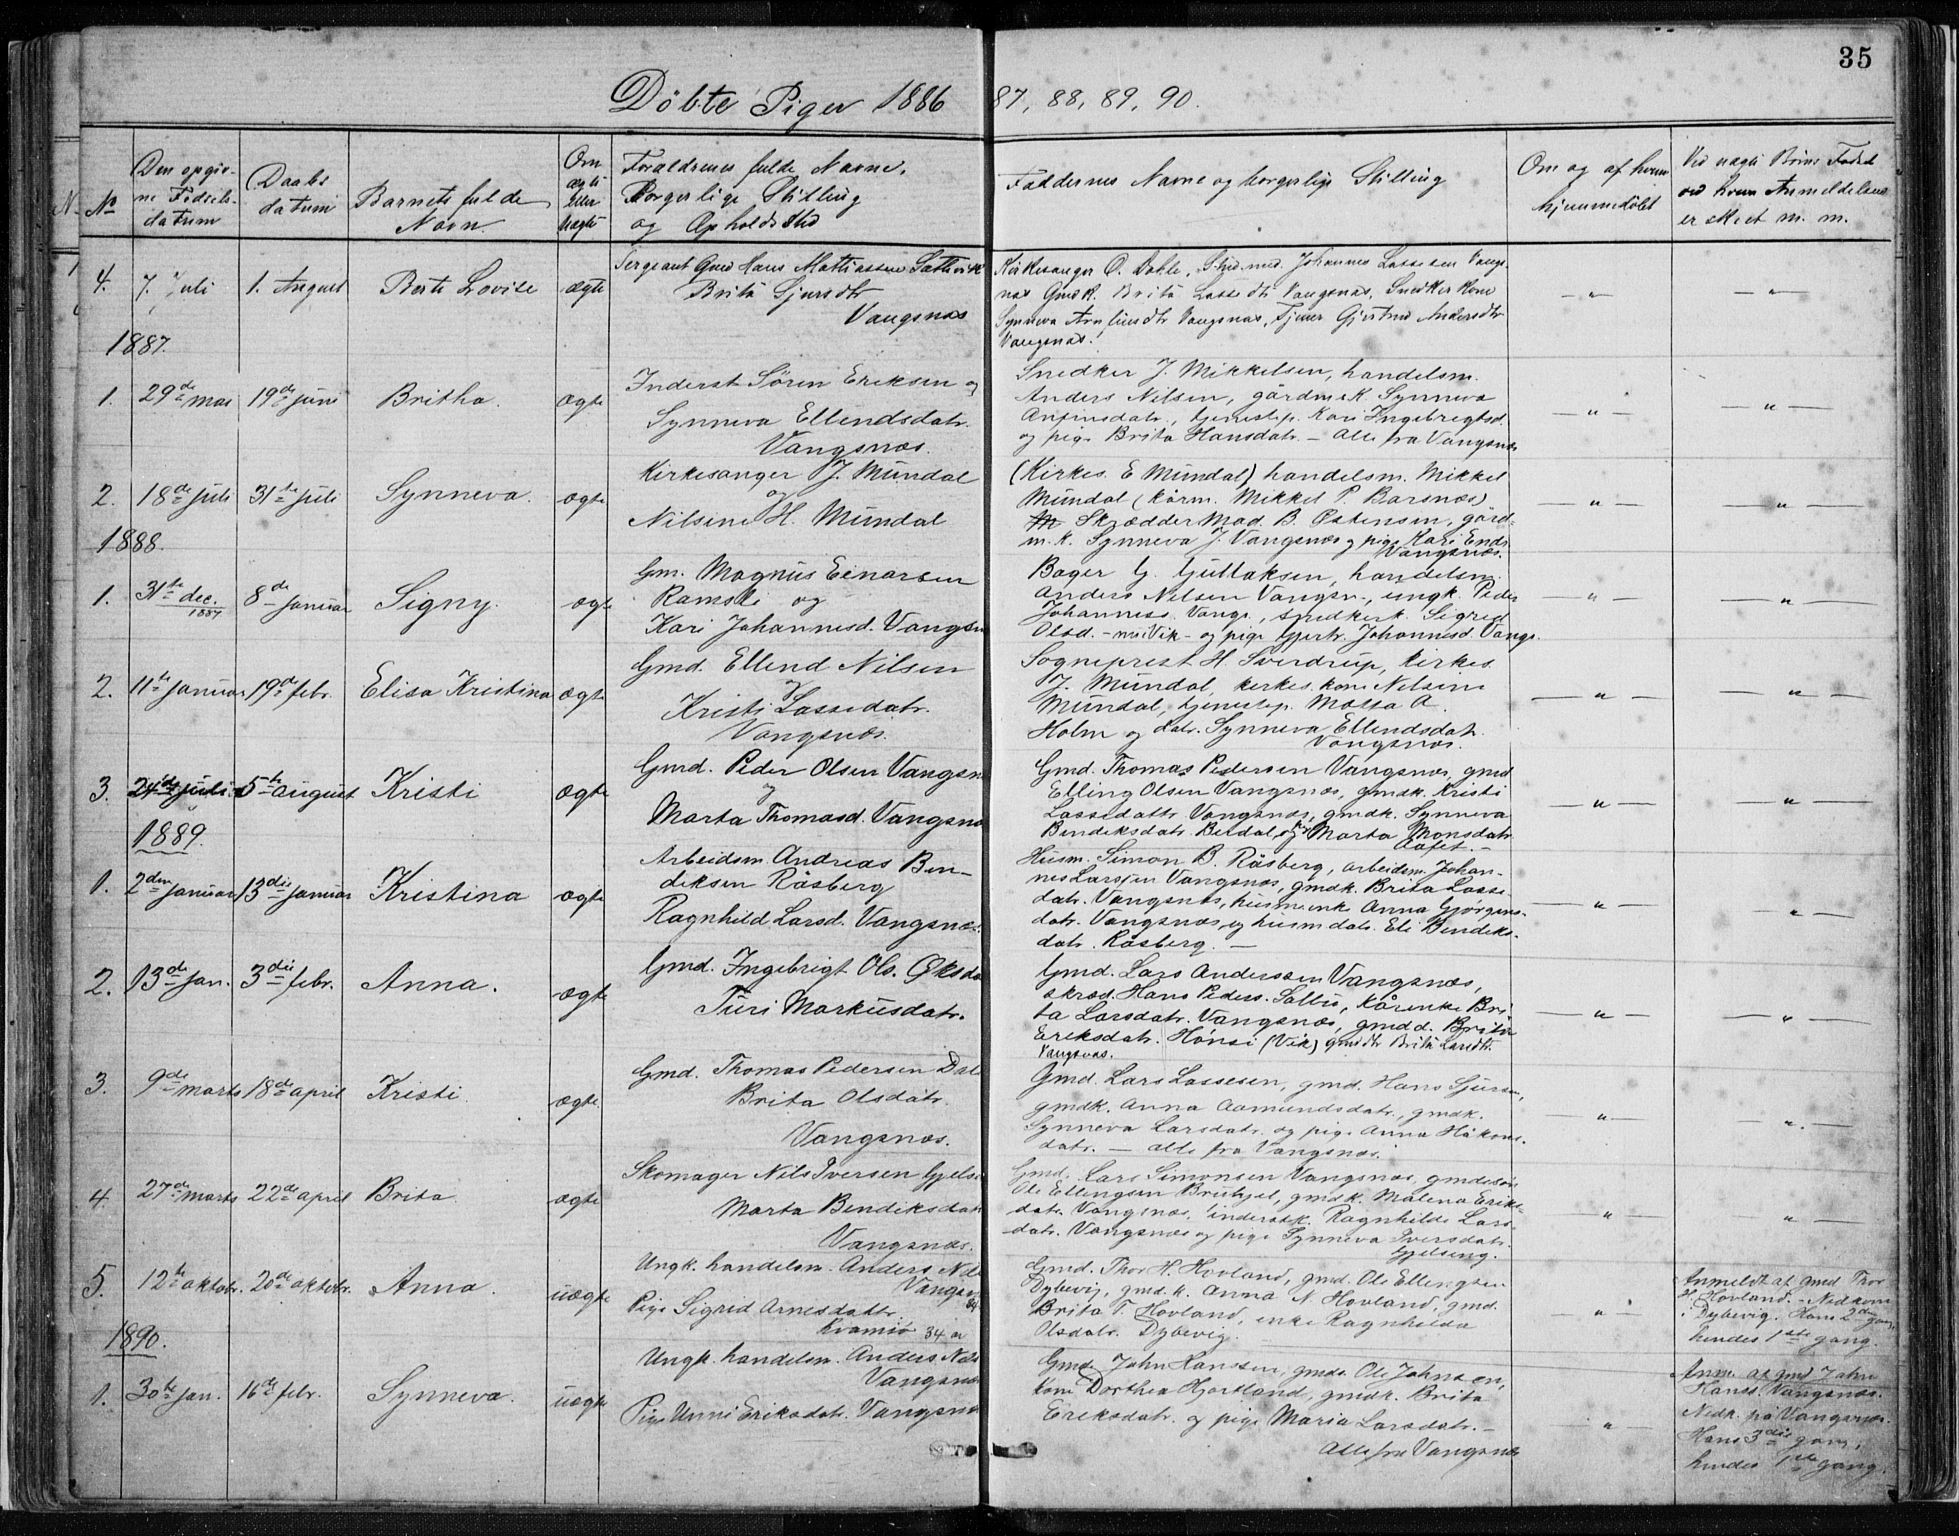 35
Döbte Piger 1886 87, 88, 89, 90.
N. No
Den opgiv-
ne Födsels-
datum
Daabs
datum
Barnets fulde
Navn.
Om
ægte
eller
uægte
Forældrenes fulde Navne,
Borgerlige Stilling
og Opholdssted
Faddernes Navne og borgerlige Stilling
Om og af hvem
hjemmedöbt
Ved uægte Börns Födsel
ved hvem Anmeldelsen
er skeet m. m.
4. 7. Juli 1. August Berte Lovise ægte
Sergeant Gmd Hans Mathiassen
Brita Sjursdtr
Vangsnæs
Kirkesanger O. Dahle, Johannes Lassesen Vangs-
næs Gmdk. Brita Lassedtr Vangsnæs, Snedker Kone
Synneva Vangsnæs, Tjener Gjertrud Andersdtr
Vangsnæs.
— " — — " —
1887.
1. 29de mai 19de juni Britha. ægte
Inderst Sören Eriksen og
Synneva Ellendsdatr.
Vangsnæs.
Snedker J. Mikkelsen, handelsm.
Anders Nilsen, gårdmk Synneva
Anfinsdatr., tjenestep. Kari Ingebrigtsd.
og pige Brita Hansdatr. — Alle fra Vangsnæs
— " — — " —
2. 18de juli 31te juli Synneva. ægte
Kirkesanger J. Mundal
og
Nilsine H. Mundal
(Kirkes. E Mundal) handelsm. Mikkel
Mundal (kårm. Mikkel P. Barsnæs)
Skrædder Mad. B. Östensen, gård-
m.k. Synneva J. Vangsnæs og pige Kari Ends.
Vangsnæs.
— " — — " —
1888.
1. 31te dec. 1887 8de januar Signy. ægte
Gm. Magnus Einarsen
Ramsli og
Kari Johannesd. Vangsn
Bager G. Gullaksen, handelsm.
Anders Nilsen Vangsn., ungk. Peder
Johanness. Vangs., snedkerk. Sigrid
Olsd. — Vik — og pige Gjertr. Johannesd. Vangs.
— " — — " —
2. 11te januar 19de febr. Elisa Kristina ægte
Gmd. Ellend Nilsen
og
Kristi Lassedatr.
Vangsnæs.
Sogneprest H. Sverdrup, Kirkes.
J. Mundal, kirkes. kone Nilsine
Mundal, tjenestep. A.
Holm og datr. Synneva Ellendsdat.
Vangsnæs.
— " — — " —
3. 24de juli 5te august Kristi ægte
Gmd. Peder Olsen Vangsn
og
Marta Thomasd. Vangsnæ
Gmd. Thomas Pedersen Vangsnæs, gmd
Elling Olsen Vangsnæs, gmdk. Kristi
Lassedattr Vangsnæs, gmdk. Synneva
Bendiksdatr. og Marta Monsdatr
— " — — " —
1889.
1. 2den januar 13die januar Kristina ægte
Arbeidsm. Andreas Ben-
diksen Råsberg
Ragnhild Larsd. Vangsnæs.
Husm. Simon B. Råsberg, arbeidsm. Johan-
nes Larssen Vangsnæs, gmdk. Brita Lasse-
datr. Vangsnæs, husm.enk. Anna Gjörgens-
datr. Vangsnæs og husm. datr. Eli Bendiks-
datr. Råsberg. —
— " — — " —
2. 13de jan. 3die febr. Anna. ægte
Gmd. Ingebrigt Ols.
Turi Markusdatr.
Gmd. Lars Anderssen Vangsnæs,
skræd. Hans Peders. kårenke Bri-
ta Larsdatr. Vangsnæs, gmdd. Brita
Eriksdatr. Hönsi (Vik) gmddtr Brita Larsdtr.
Vangsnæs.
— " — — " —
3. 9de marts 18de april Kristi. ægte.
Gmd. Thomas Pedersen
Brita Olsdatr.
Vangsnæs.
Gmd. Lars Lassesen, gmd. Hans Sjurs
gmdk. Anna Aamundsdatr., gmdk.
Synneva Larsdatr. og pige Anna Håkons-
datr. — alle fra Vangsnæs.
— " — — " —
4. 27de marts 22de april Brita. ægte
Skomager Nils Iversen
Marta Bendiksdatr
Vangsnæs.
Gmd. Lars Simonsen Vangsnæs, gmdsön
Ole Ellingsen gmdk. Malena Eriks-
datr. Vangsnæs, inderstk. Ragnhilde Lars-
datr. Vangsnæs og pige Synneva Iversdatr.
— " — — " —
5. 12te oktobr. 20de oktobr. Anna. uægte
Ungk. handelsm. Anders Nils
Vangsn
Pige Sigrid Arnesdattr.
Kvamsö 34 år
Gmd. Thor H. Hovland, gmd. Ole Ellingsen
Dybevig, gmdk. Anna N. Hovland, gmd.
Brita T. Hovland, enke Ragnhilda
Olsdatr. Dybevig.
— " —
Anmeldt af gmd Thor
H. Hovland. — Nedkom
i Dybevig. Hans 2den gang,
hendes 1ste gang.
1890.
1. 30te jan. 16de febr. Synneva. uægte
Ungk. handelsm. Anders Nils
Vangsnæ
Pige Unni Eriksdatr. Vangsnæ
Gmd. John Hanssen, gmds. Ole Johnsen,
kone Dorthea Hjortland, gmdk. Brita
Eriksdatr. og pige Maria Larsdatr. —
Alle fra Vangsnæs
"
Anm. af gmd John
Hanss. Vangsnæs.
Nedk. på Vangsnæs.
Hans 3die gang,
hendes 1ste gang.